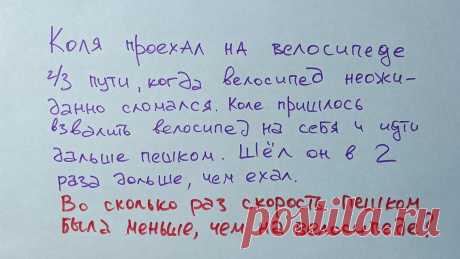 Коля проехал на велосипеде
2/3 пути, когда велосипед неожи-
данно сломался. Коле пришлось
взвалить велосипед на себя и идти
дальше пешком. Шёл он в 2
раза дольше, чем ехал.
Во сколько раз скорость пешком
была меньше, чем на велосипеде?
Postila.ru